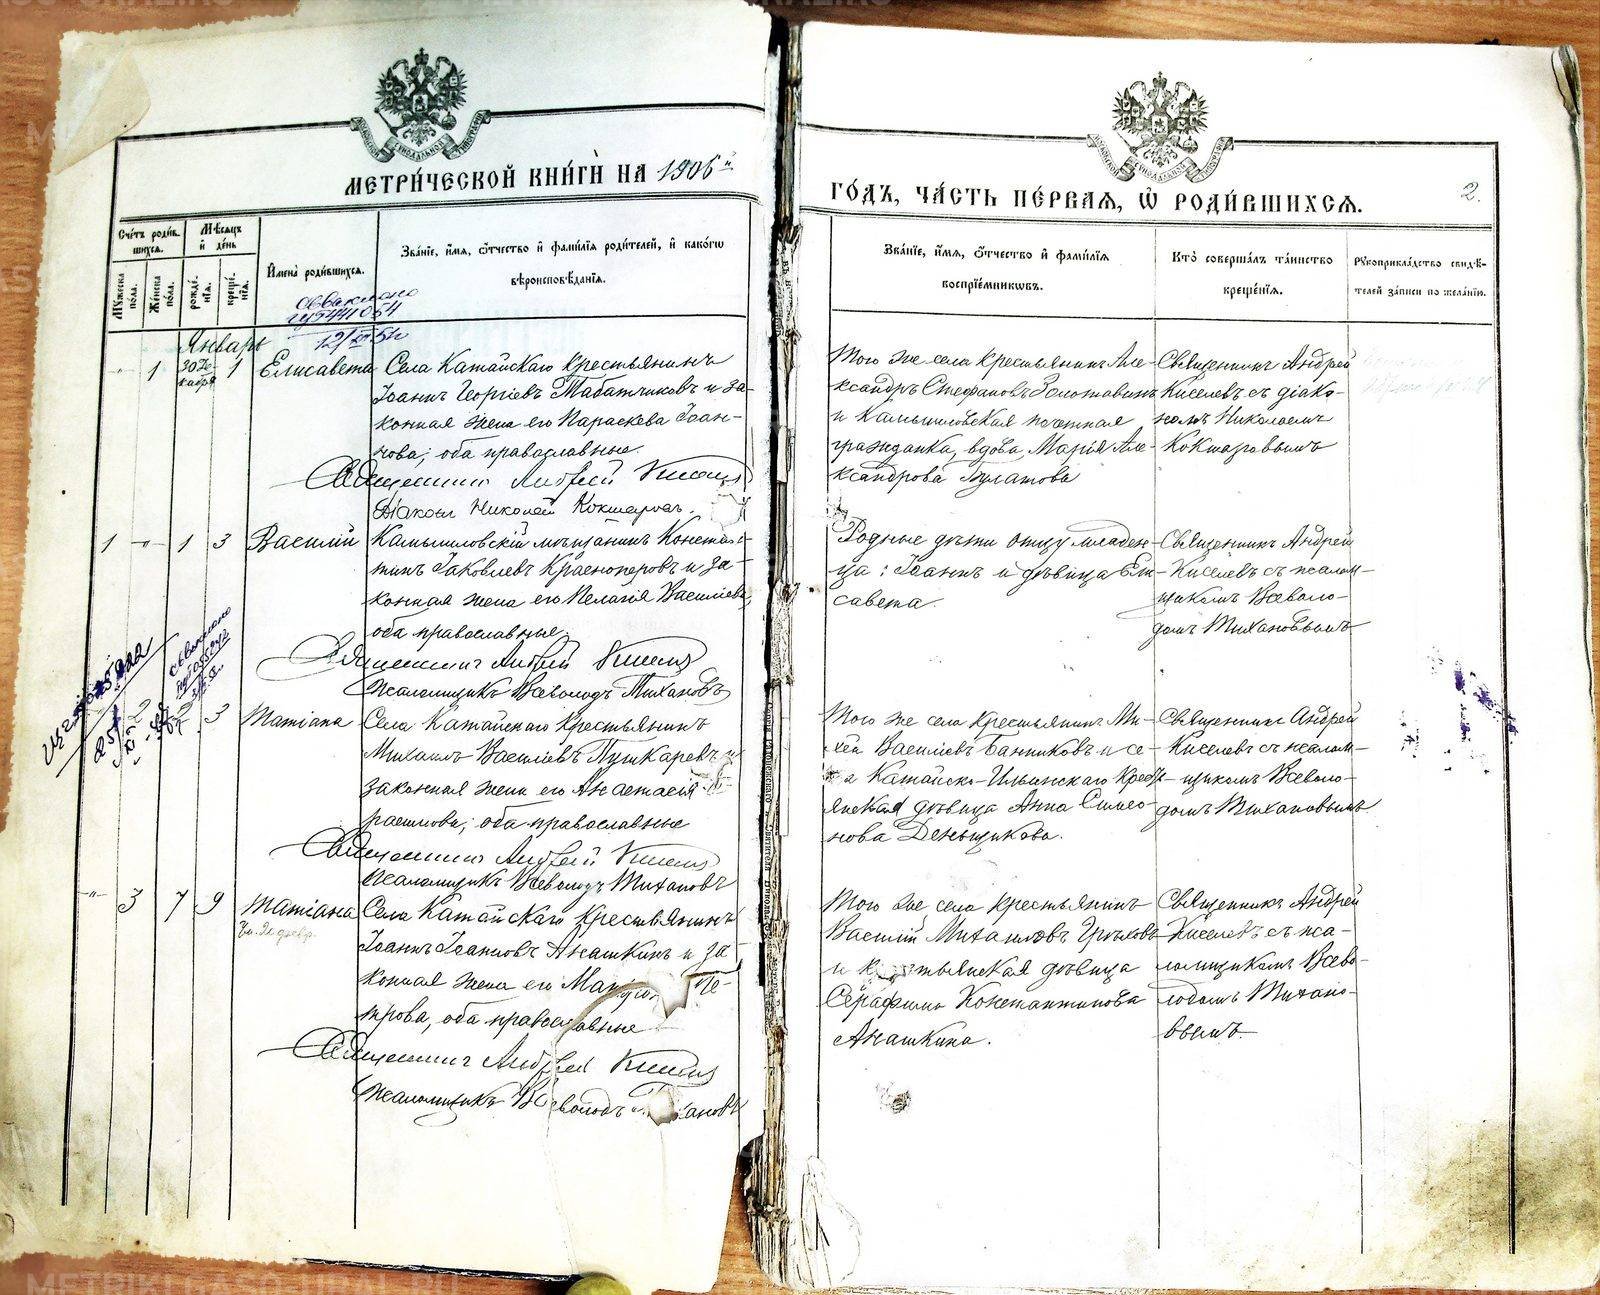 МЕТРИ́ЧЕСКОЙ КНИ́ГИ НА 1906й
ГО́ДЪ, ЧА́СТЬ ПЕ́РВАѦ, Ѡ РОДИ́ВШИХСѦ.
2.
Сче́тъ роди́вшихсѧ.
Мѣ́сѧцъ и де́нь
Мꙋ́жеска по́ла.
Же́нска по́ла.
рожде́нїѧ.
креще́нїѧ.
И́мена роди́вшихсѧ.
Зва́нїе, и́мѧ, ѻ́тчество и фами́лїѧ роди́телей, и како́гѡ
вѣроисповѣ́данїѧ.
Зва́нїе, и́мѧ, ѻ́тчество и фами́лїѧ
воспрїе́мниковъ.
Кто̀ соверша́лъ та́инство
креще́нїѧ.
Рꙋкоприкла́дство свидѣ́-
телей за́писи по жела́нїю.
Январь
1 30 Де-
кабря 1 Елисавета
Села Катайскаго крестьянинъ
Іоаннъ Георгіевъ Табатчиковъ и за-
конная жена его Параскева Іоан-
нова; оба православные.
Священникъ Андрей Киселевъ
Діаконъ Николай Кокшаровъ.
Того же села крестьянинъ Але-
ксандръ Стефановъ Золотавинъ
и Камышловская почетная
гражданка, вдова, Марія Але-
ксандрова Булатова
Священникъ Андрей
Киселевъ съ діако-
номъ Николаемъ
Кокшаровымъ
1 -"- 1 3 Василій
Камышловскій мѣщанинъ Констан-
тинъ Іаковлевъ Красноперовъ и за-
конная жена его Пелагія Василіева,
оба православные
Священникъ Андрей Киселевъ
Псаломщикъ Всеволодъ Тихановъ
Родные дѣти отцу младен-
ца: Іоаннъ и дѣвица Ели-
савета.
Священникъ Андрей
Киселевъ съ псалом-
щикомъ Всеволо-
домъ Тихановымъ
2 2 3 Татіана
Села Катайскаго крестьянинъ
Михаилъ Василіевъ Пушкаревъ и
законная жена его Анастасія
расимова; оба православные
Священникъ Андрей Киселевъ
Псаломщикъ Всеволодъ Тихановъ
Того же села крестьянинъ Ми-
хей Василіевъ Банниковъ и се-
ла Катайско-Ильинскаго крестъ-
янская дѣвица Анна Симео-
нова Деньщикова.
Священникъ Андрей
Киселевъ съ псалом-
щикомъ Всеволо-
домъ Тихановымъ
-"- 3 7 9 Татіана
Села Катайскаго крестьянинъ
Іоаннъ Іоанновъ Анашкинъ и за-
конная жена его Пе-
трова, оба православные
Священникъ Андрей Киселевъ
Псаломщикъ Всеволодъ Тихановъ
Того же села крестьянинъ
Василій Михаиловъ Грѣховъ
и крестьянская дѣвица
Серафима Константинова
Анашкина.
Священникъ Андрей
Киселевъ съ пса-
ломщикомъ Всево-
лодомъ Тихано-
вымъ